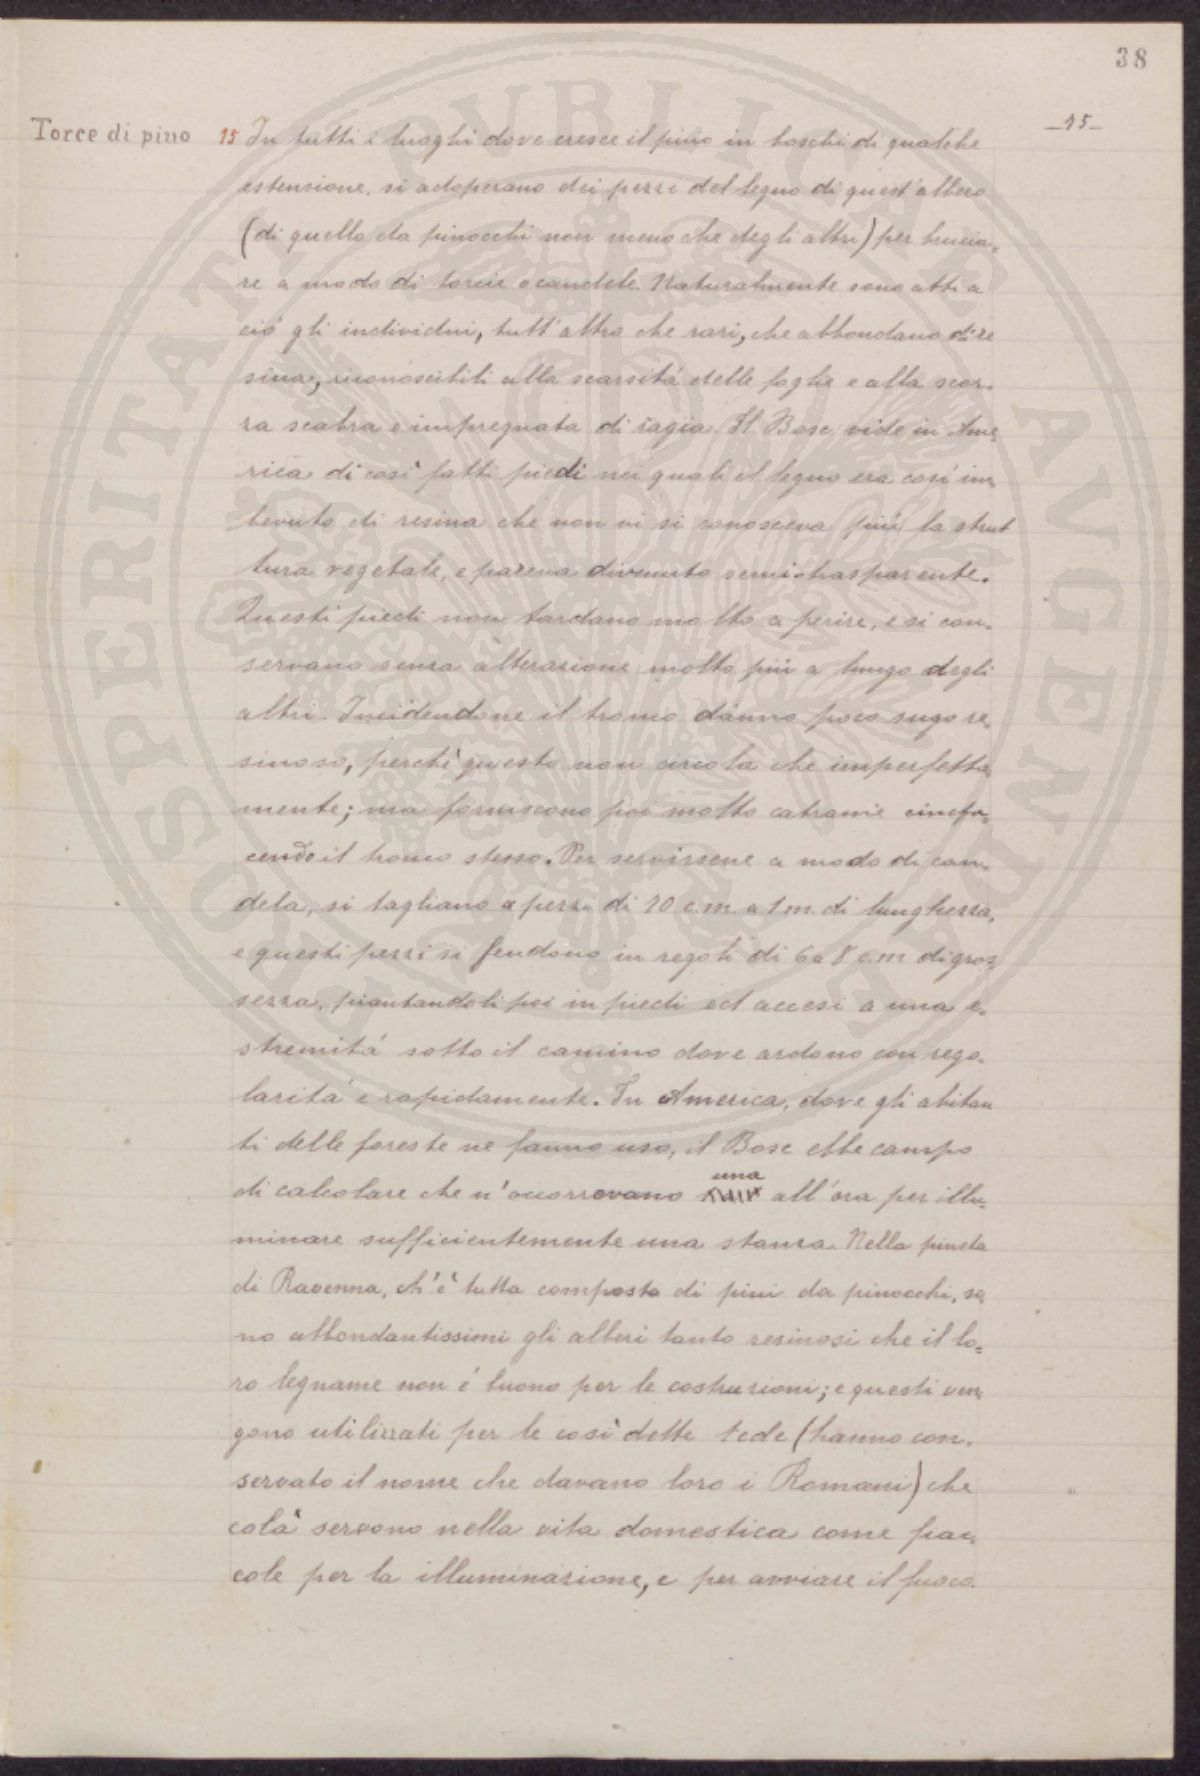 38
Torce di pino
-15-
15 In tutti i luoghi dove cresce il pino in boschi di qualche
estensione, si adoperano dei pezzi del legno di quest'albero
(di quello da pinocchi non meno che degli altri) per brucia=
re a modo di torcie o candele. Naturalmente sono atti a
ciò gli individui, tutt'altro che rari, che abbondano di re
sina, riconoscibili alla scarsità delle foglie e alla scor=
za scabra e impregnata di ragia. Il Bosc vide in Ame
rica di così fatti piedi nei quali il legno era così im
bevuto di resina che non vi si conosceva più la strut
tura vegetale, e pareva divenuto semitrasparente.
Questi piedi non tardano molto a perire, e si con=
servano senza alterazione molto più a lungo degli
altri. Incidendone il tronco dànno poco sugo re
sinoso, perchè questo non circola che imperfetta
mente; ma forniscono poi molto catrame cinefa=
cendo il tronco stesso. Per servirsene a modo di can=
dela, si tagliano a pezzi di 70 c.m. a 1 m. di lunghezza,
e questi pezzi si fendono in regoli di 6 a 8 c.m. di gros
sezza, piantandoli poi in piedi ed accesi a una e=
stremità sotto il camino dove ardono con rego=
larità e rapidamente. In America, dove gli abitan
ti delle foreste ne fanno uso, il Bosc ebbe campo
di calcolare che n'occorrevano una all'ora per illu=
minare sufficientemente una stanza. Nella pineta
di Ravenna, ch'è tutta composta di pini da pinocchi, so
no abbondantissimi gli alberi tanto resinosi che il lo=
ro legname non è buono per le costruzioni; e questi ven
gono utilizzati per le così dette tede (hanno con=
servato il nome che davano loro i Romani) che
colà servono nella vita domestica come fiac
cole per la illuminazione, e per avviare il fuoco.
PROSPERITATI PUBLICAE AVGENDAE